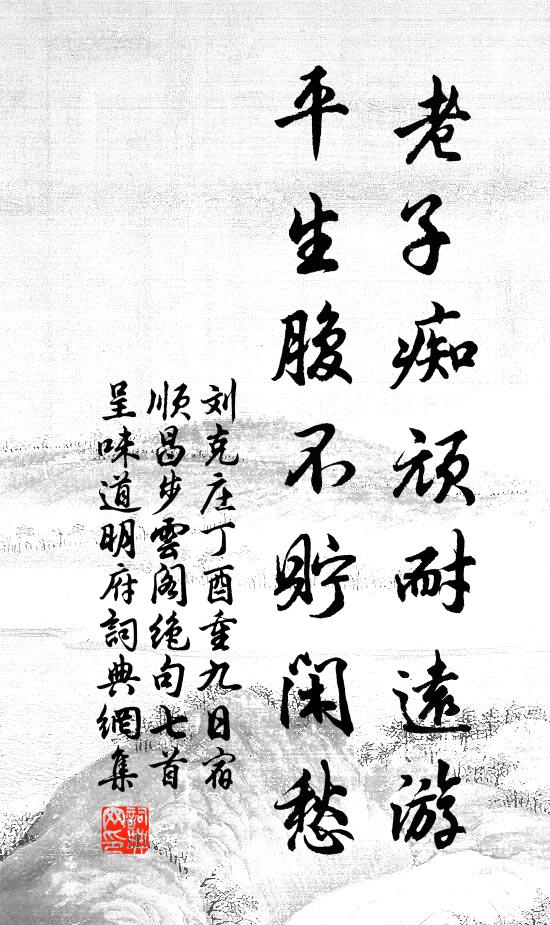 老子痴顽耐遠游
平生腹不貯閑愁
刘克庄丁酉重九日宿
顺昌步雲阁绝句七首
呈味道明府詞典網集